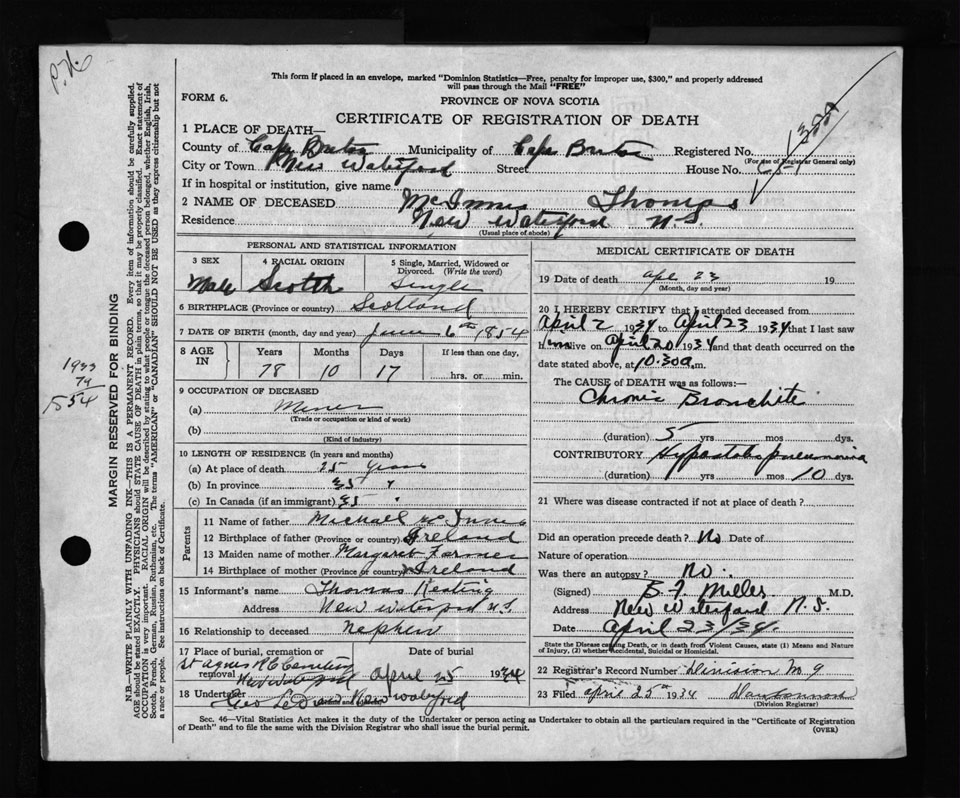 P.H.
This form if placed in an envelope, marked "Dominion Statistics—Free, penalty for improper use, $300," and properly addressed
will pass through the Mail "FREE"
FORM 6.
PROVINCE OF NOVA SCOTIA
CERTIFICATE OF REGISTRATION OF DEATH
1 PLACE OF DEATH—
County of Cape Breton Municipality of Cape Breton Registered No.
(For use of Registrar General only)
City or Town New Waterford Street House No.
If in hospital or institution, give name
2 NAME OF DECEASED McInnis Thomas
Residence New Waterford N.S.
(Usual place of abode)
PERSONAL AND STATISTICAL INFORMATION
3 SEX 4 RACIAL ORIGIN 5 Single, Married, Widowed or Divorced. (Write the word)
Male Scotch Single
6 BIRTHPLACE (Province or country) Scotland
7 DATE OF BIRTH (month, day and year) June 6th 1854
8 AGE IN Years Months Days If less than one day.
78 10 17 hrs. or min.
9 OCCUPATION OF DECEASED
(a) Miner
(Trade or occupation or kind of work)
(b)
(Kind of industry)
10 LENGTH OF RESIDENCE (in years and months)
(a) At place of death 25 years
(b) In province 35 "
(c) In Canada (if an immigrant) 35 "
Parents
11 Name of father Michael McInnis
12 Birthplace of father (Province or country) Ireland
13 Maiden name of mother Margaret Farmer
14 Birthplace of mother (Province or country) Ireland
15 Informant's name Thomas Keating
Address New Waterford N.S.
16 Relationship to deceased nephew
17 Place of burial, cremation or removal Date of burial
St Agnes R C Cemetery New Waterford April 25 1934
18 Undertaker Geo New Waterford
(Name and address)
MEDICAL CERTIFICATE OF DEATH
19 Date of death Apl 23 19
(Month, day and year)
20 I HEREBY CERTIFY that I attended deceased from
April 2 1934 to April 23 1934 that I last saw
him alive on April 20 1934 and that death occurred on the
date stated above, at 10.30 a.m.
The CAUSE of DEATH was as follows:—
Chronic Bronchite
(duration) 5 yrs mos dys.
CONTRIBUTORY Hypostatic pneumonia
(duration) yrs mos 10 dys.
21 Where was disease contracted if not at place of death?
Did an operation precede death? No Date of
Nature of operation
Was there an autopsy? No.
(Signed) B. F. Miller M.D.
Address New Waterford N.S.
Date April 23/34.
State the Disease causing Death, or in death from Violent Causes, state (1) Means and Nature of Injury, (2) whether Accidental, Suicidal or Homicidal.
22 Registrar's Record Number Division No. 9
23 Filed April 25th 1934 Dan
(Division Registrar)
Sec. 46—Vital Statistics Act makes it the duty of the Undertaker or person acting as Undertaker to obtain all the particulars required in the "Certificate of Registration
of Death" and to file the same with the Division Registrar who shall issue the burial permit. (OVER)
MARGIN RESERVED FOR BINDING
N.B.—WRITE PLAINLY WITH UNFADING INK—THIS IS A PERMANENT RECORD. Every item of information should be carefully supplied.
AGE should be stated EXACTLY. PHYSICIANS should STATE CAUSE OF DEATH in plain terms, so that it may be properly classified. Exact statement of
OCCUPATION is very important. RACIAL ORIGIN will be described by stating to what people or tongue the deceased person belonged, whether English, Irish,
Scotch, French, German, Russian, Ruthenian, etc. The terms "AMERICAN" or "CANADIAN" SHOULD NOT BE USED as they express citizenship but not
a race or people. See instructions on back of Certificate.
1933
79
1854